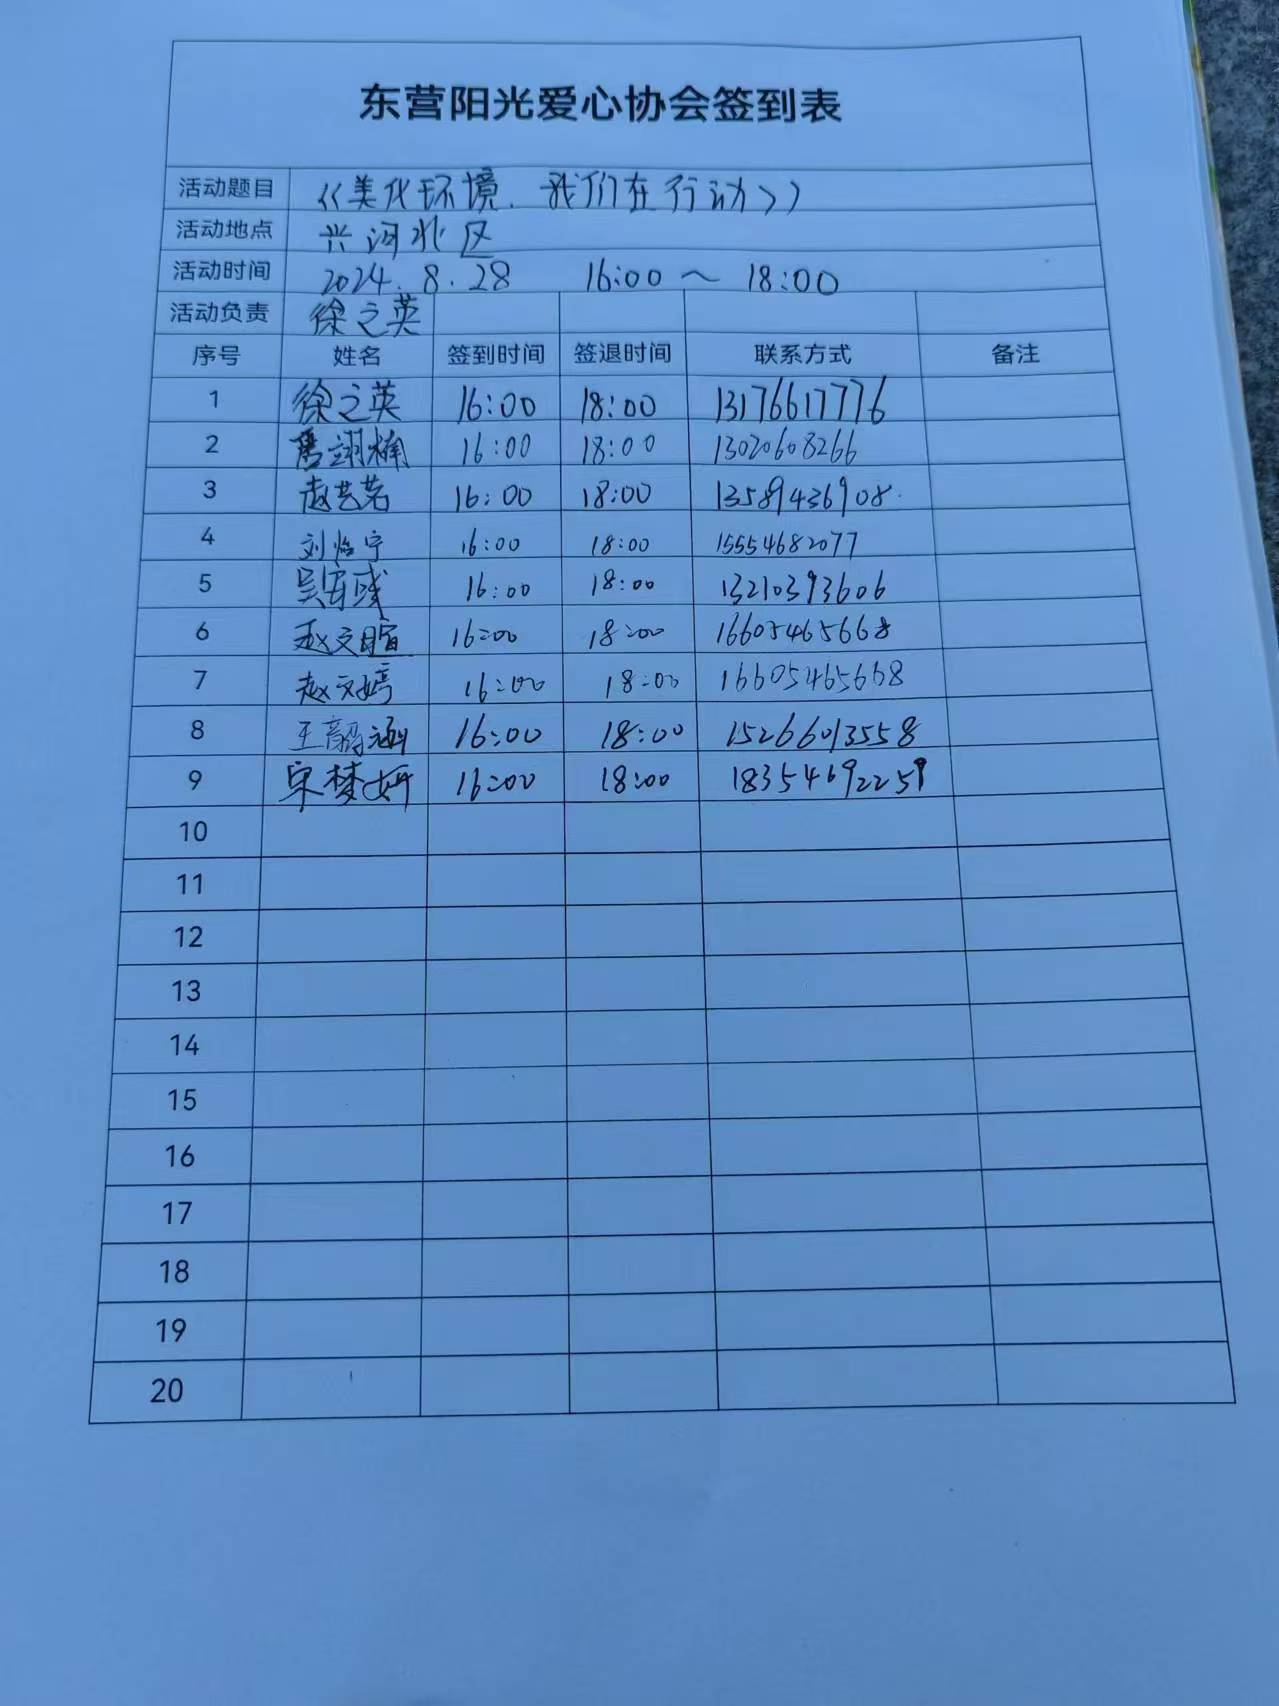 东营阳光爱心协会签到表
活动题目 《美化环境、我们在行动》
活动地点 兴河北区
活动时间 2024.8.28 16:00～18:00
活动负责 徐之英
序号 姓名 签到时间 签退时间 联系方式 备注
1 徐之英 16:00 18:00 13176617776
2 翊楠 16:00 18:00 13020608266
3 赵艺茗 16:00 18:00 13589436908
4 刘怡宁 16:00 18:00 15554682077
5 吴 16:00 18:00 13210393606
6 赵文暄 16:00 18:00 16605465668
7 赵文嫣 16:00 18:00 16605465668
8 王韵涵 16:00 18:00 15266013558
9 宋梦妍 16:00 18:00 18354692259
10
11
12
13
14
15
16
17
18
19
20